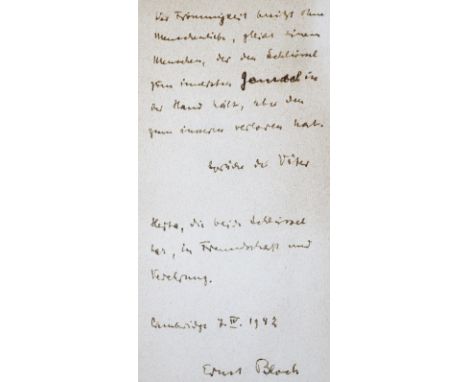 Wer Frömmigkeit besitzt ohne
Menschenliebe, gleicht einem
Menschen, der den Schlüssel
zum innersten Gemach in
der Hand hält, aber den
zum äusseren verloren hat.
Sprüche der Väter
die beide Schlüssel
hat, in Freundschaft und
Verehrung.
Cambridge 7. IV. 1942
Ernst Bloch